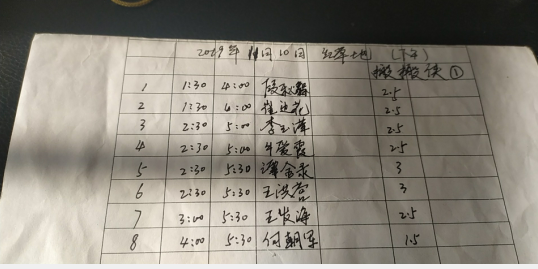 2019年 11月10日 红草地 (下午)
搬搬侠①
1 1:30 4:00 2.5
2 1:30 4:00 花 2.5
3 2:30 5:00 李玉萍 2.5
4 2:30 5:00 牛 霞 2.5
5 2:30 5:30 谭金录 3
6 2:30 5:30 王洪营 3
7 3:00 5:30 王发海 2.5
8 4:00 5:30 何朝军 1.5